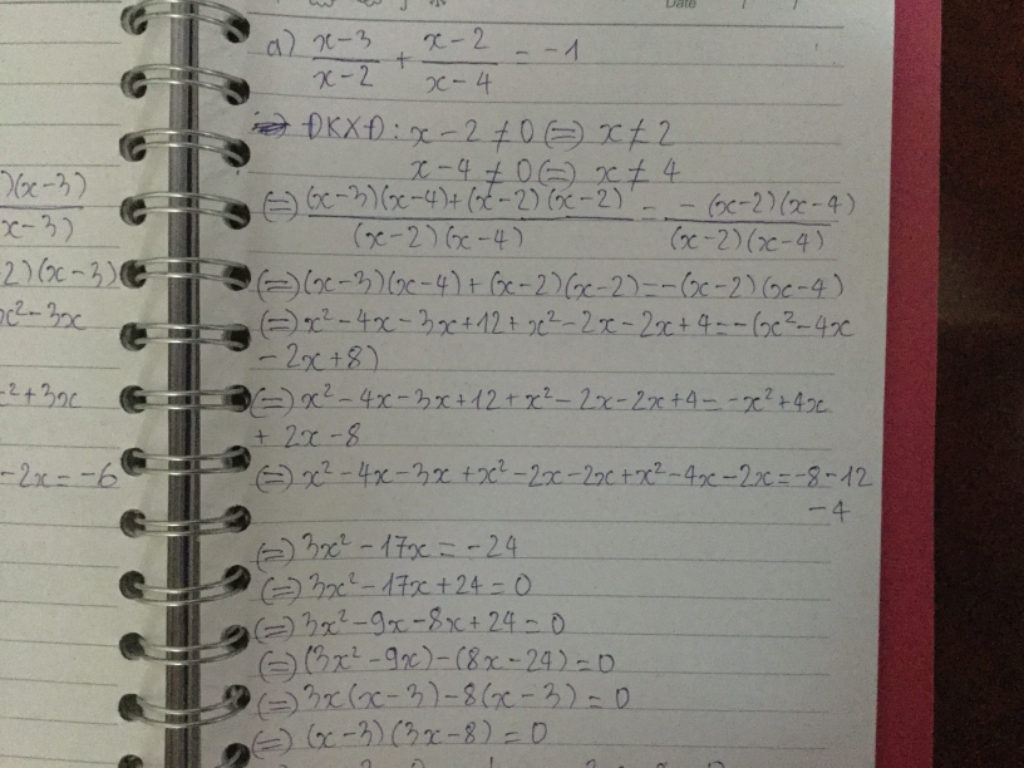 Date / /
a) (x-3)/(x-2) + (x-2)/(x-4) = -1
ĐKXĐ: x-2 ≠ 0 (=) x ≠ 2
x-4 ≠ 0 (=) x ≠ 4
)(x-3)
x-3)
(=) ((x-3)(x-4)+(x-2)(x-2))/((x-2)(x-4)) = (-(x-2)(x-4))/((x-2)(x-4))
2)(x-3)
(=) (x-3)(x-4)+(x-2)(x-2)=-(x-2)(x-4)
x²-3x
(=) x²-4x-3x+12+x²-2x-2x+4=-(x²-4x
-2x+8)
x²+3x
(=) x²-4x-3x+12+x²-2x-2x+4=-x²+4x
+2x-8
-2x=-6
(=) x²-4x-3x+x²-2x-2x+x²-4x-2x=-8-12
-4
(=) 3x²-17x=-24
(=) 3x²-17x+24=0
(=) 3x²-9x-8x+24=0
(=) (3x²-9x)-(8x-24)=0
(=) 3x(x-3)-8(x-3)=0
(=) (x-3)(3x-8)=0